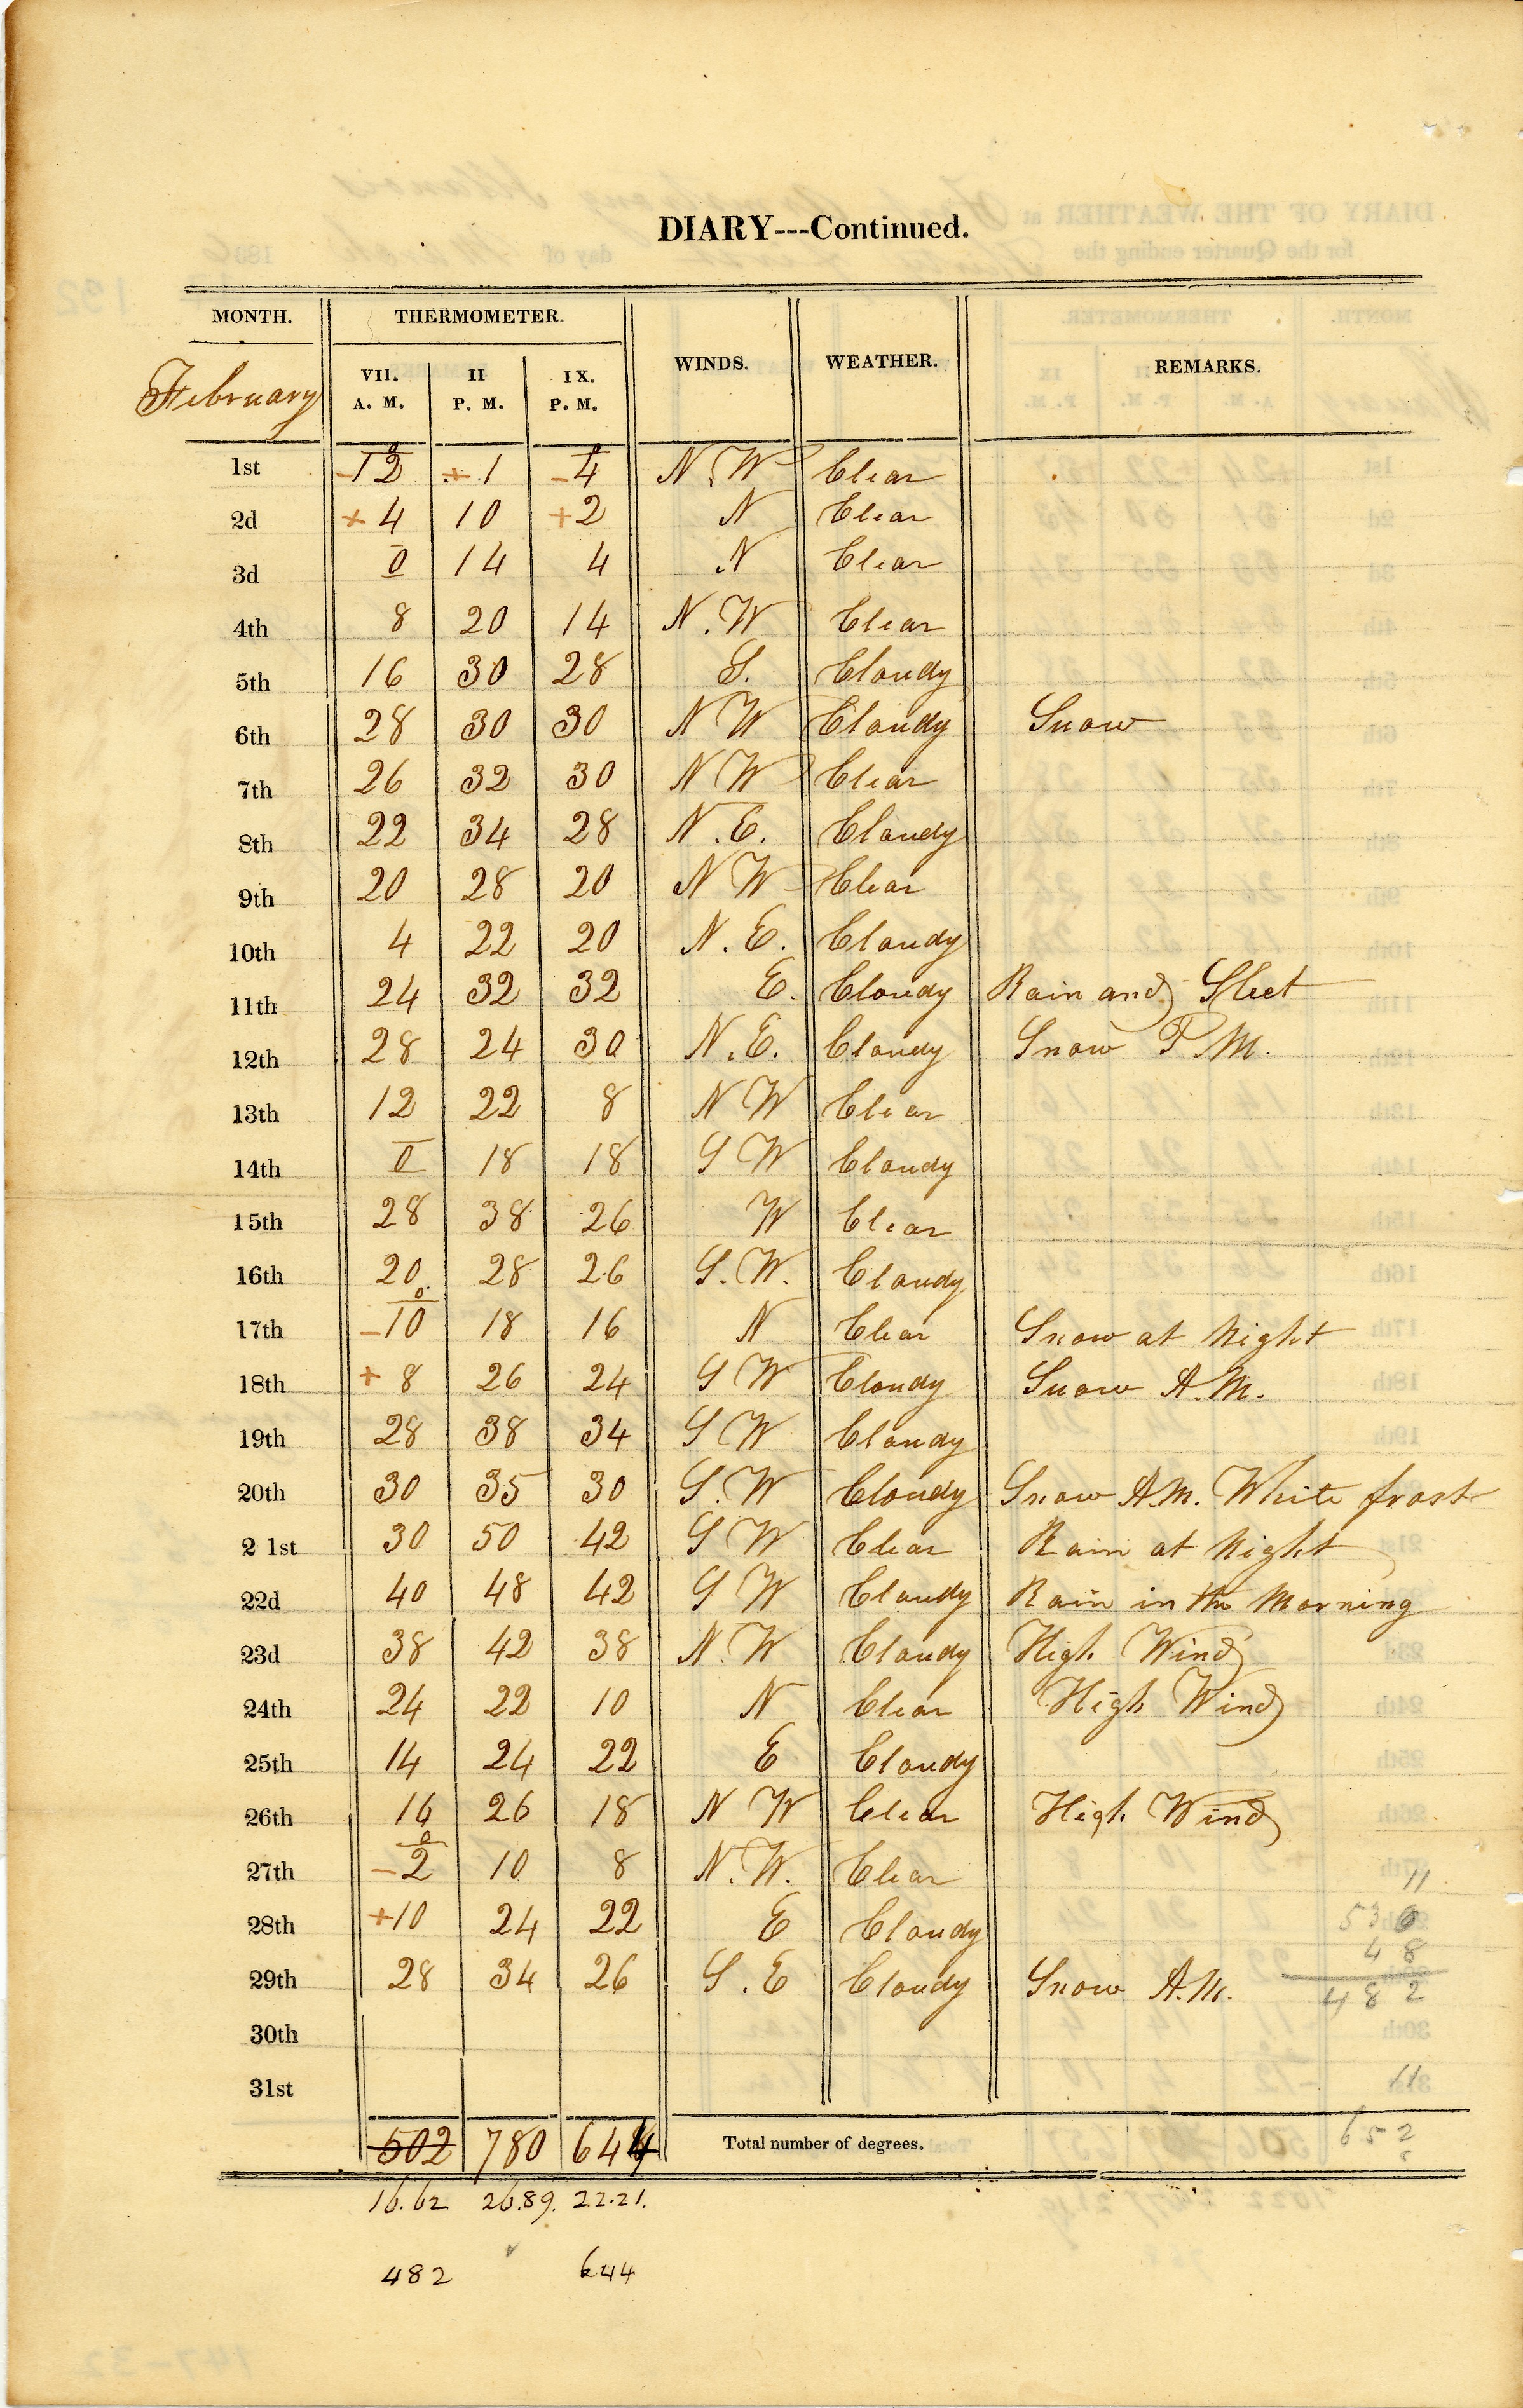 DIARY---Continued.
MONTH. THERMOMETER. WINDS. WEATHER. REMARKS.
February VII. A. M. II P. M. IX. P. M.
1st -12 +1 -4 N.W Clear
2d +4 10 +2 N Clear
3d 0 14 4 N Clear
4th 8 20 14 N.W Clear
5th 16 30 28 S. Cloudy
6th 28 30 30 N W Cloudy Snow
7th 26 32 30 N W Clear
8th 22 34 28 N.E. Cloudy
9th 20 28 20 N W Clear
10th 4 22 20 N.E. Cloudy
11th 24 32 32 E. Cloudy Rain and Sleet
12th 28 24 30 N.E. Cloudy Snow P M.
13th 12 22 8 N W Clear
14th 0 18 18 S W Cloudy
15th 28 38 26 W Clear
16th 20 28 26 S.W. Cloudy
17th -10 18 16 N Clear Snow at Night
18th +8 26 24 S W Cloudy Snow A.M.
19th 28 38 34 S W Cloudy
20th 30 35 30 S.W Cloudy Snow A.M. White frost
21st 30 50 42 S W Clear Rain at Night
22d 40 48 42 S W Cloudy Rain in the Morning
23d 38 42 38 N.W Cloudy High Wind
24th 24 22 10 N Clear High Wind
25th 14 24 22 E Cloudy
26th 16 26 18 N W Clear High Wind
27th -2 10 8 N.W. Clear
11
28th +10 24 22 E Cloudy 530
48
29th 28 34 26 S.E Cloudy Snow A.M. 482
30th
31st 11
502 780 644 Total number of degrees. 652
16.62 26.89. 22.21.
482 644